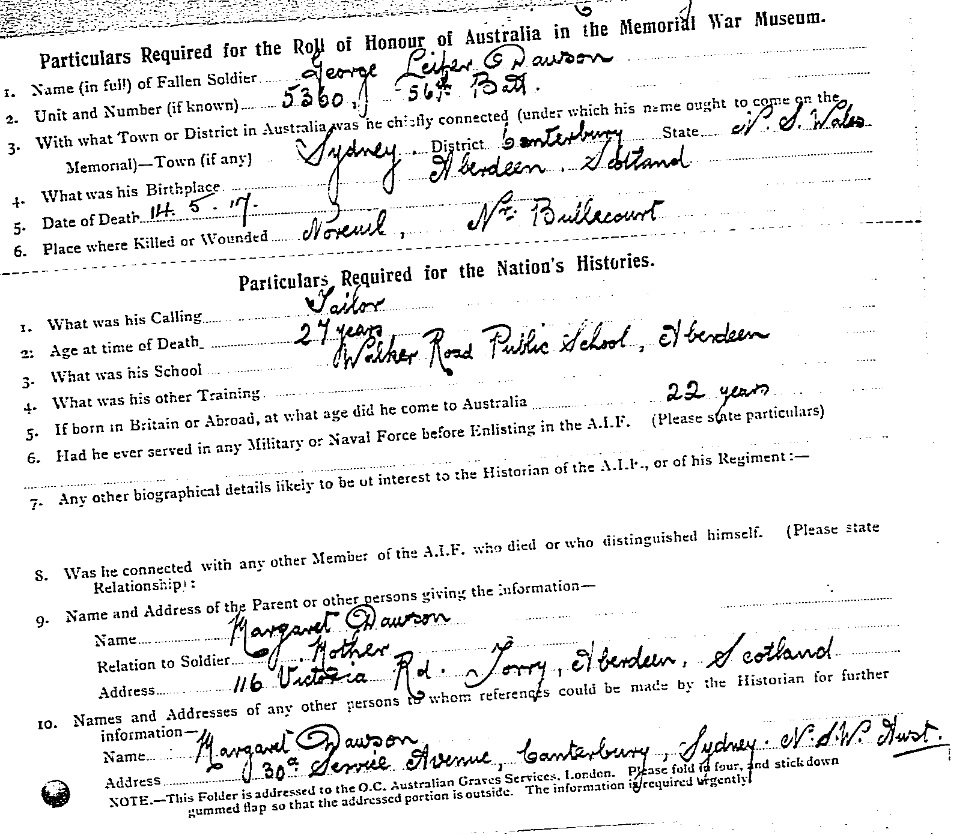 Particulars Required for the Roll of Honour of Australia in the Memorial War Museum.
1. Name (in full) of Fallen Soldier George Leiper Dawson
2. Unit and Number (if known) 5360, 56th Batt.
3. With what Town or District in Australia was he chiefly connected (under which his name ought to come on the
Memorial)—Town (if any) Sydney. District Canterbury State N. S. Wales
4. What was his Birthplace Aberdeen. Scotland
5. Date of Death 14. 5. 17.
6. Place where Killed or Wounded Noreuil, Nr. Bullecourt
Particulars Required for the Nation's Histories.
1. What was his Calling Tailor
2: Age at time of Death 27 years
3. What was his School Walker Road Public School, Aberdeen
4. What was his other Training
5. If born in Britain or Abroad, at what age did he come to Australia 22 years
6. Had he ever served in any Military or Naval Force before Enlisting in the A.I.F. (Please state particulars)
7. Any other biographical details likely to be of interest to the Historian of the A.I.F., or of his Regiment:—
8. Was he connected with any other Member of the A.I.F. who died or who distinguished himself. (Please state
Relationship):
9. Name and Address of the Parent or other persons giving the information—
Name Margaret Dawson
Relation to Soldier Mother
Address 116 Victoria Rd. Torry, Aberdeen, Scotland
10. Names and Addresses of any other persons to whom references could be made by the Historian for further
information—
Name Margaret Dawson
Address 30a Service Avenue, Canterbury, Sydney. N.S.W. Aust.
NOTE.—This Folder is addressed to the O.C. Australian Graves Services, London. Please fold in four, and stick down
gummed flap so that the addressed portion is outside. The information is required urgently